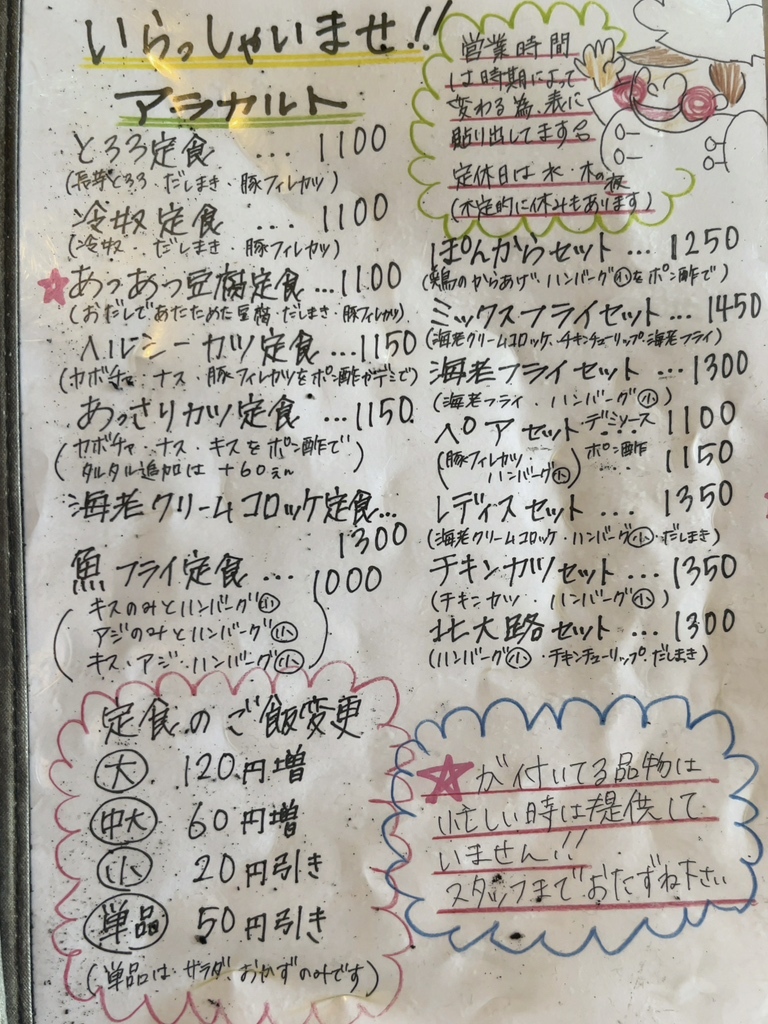 いらっしゃいませ!!
アラカルト
とろろ定食 ... 1100
(長芋とろろ・だしまき・豚フィレカツ)
冷奴定食 ... 1100
(冷奴・だしまき・豚フィレカツ)
★あつあつ豆腐定食 ... 1100
(おだしであたためた豆腐・だしまき・豚フィレカツ)
ヘルシーカツ定食 ... 1150
(カボチャ・ナス・豚フィレカツをポン酢かデミで)
あっさりカツ定食 ... 1150
(カボチャ・ナス・キスをポン酢で
タルタル追加は +60えん)
海老クリームコロッケ定食...
1300
魚フライ定食 ... 1000
(キスのみとハンバーグ小
アジのみとハンバーグ小
キス・アジ・ハンバーグ小)
営業時間
は時期によって
変わる為、表に
貼り出してます
定休日は水・木の夜
(不定的に休みもあります)
ぽんからセット ... 1250
(鶏のからあげ・ハンバーグ小をポン酢で)
ミックスフライセット ... 1450
(海老クリームコロッケ・チキンチューリップ・海老フライ)
海老フライセット ... 1300
(海老フライ・ハンバーグ小)
ペアセット デミソース 1100
(豚フィレカツ・ハンバーグ小) ポン酢 ... 1150
レディスセット ... 1350
(海老クリームコロッケ・ハンバーグ小・だしまき)
チキンカツセット ... 1350
(チキンカツ・ハンバーグ小)
北大路セット ... 1300
(ハンバーグ小・チキンチューリップ・だしまき)
定食のご飯変更
大 120円増
中大 60円増
小 20円引き
単品 50円引き
(単品は、サラダ、おかずのみです)
★が付いてる品物は
忙しい時は提供して
いません!!
スタッフまでおたずね下さい